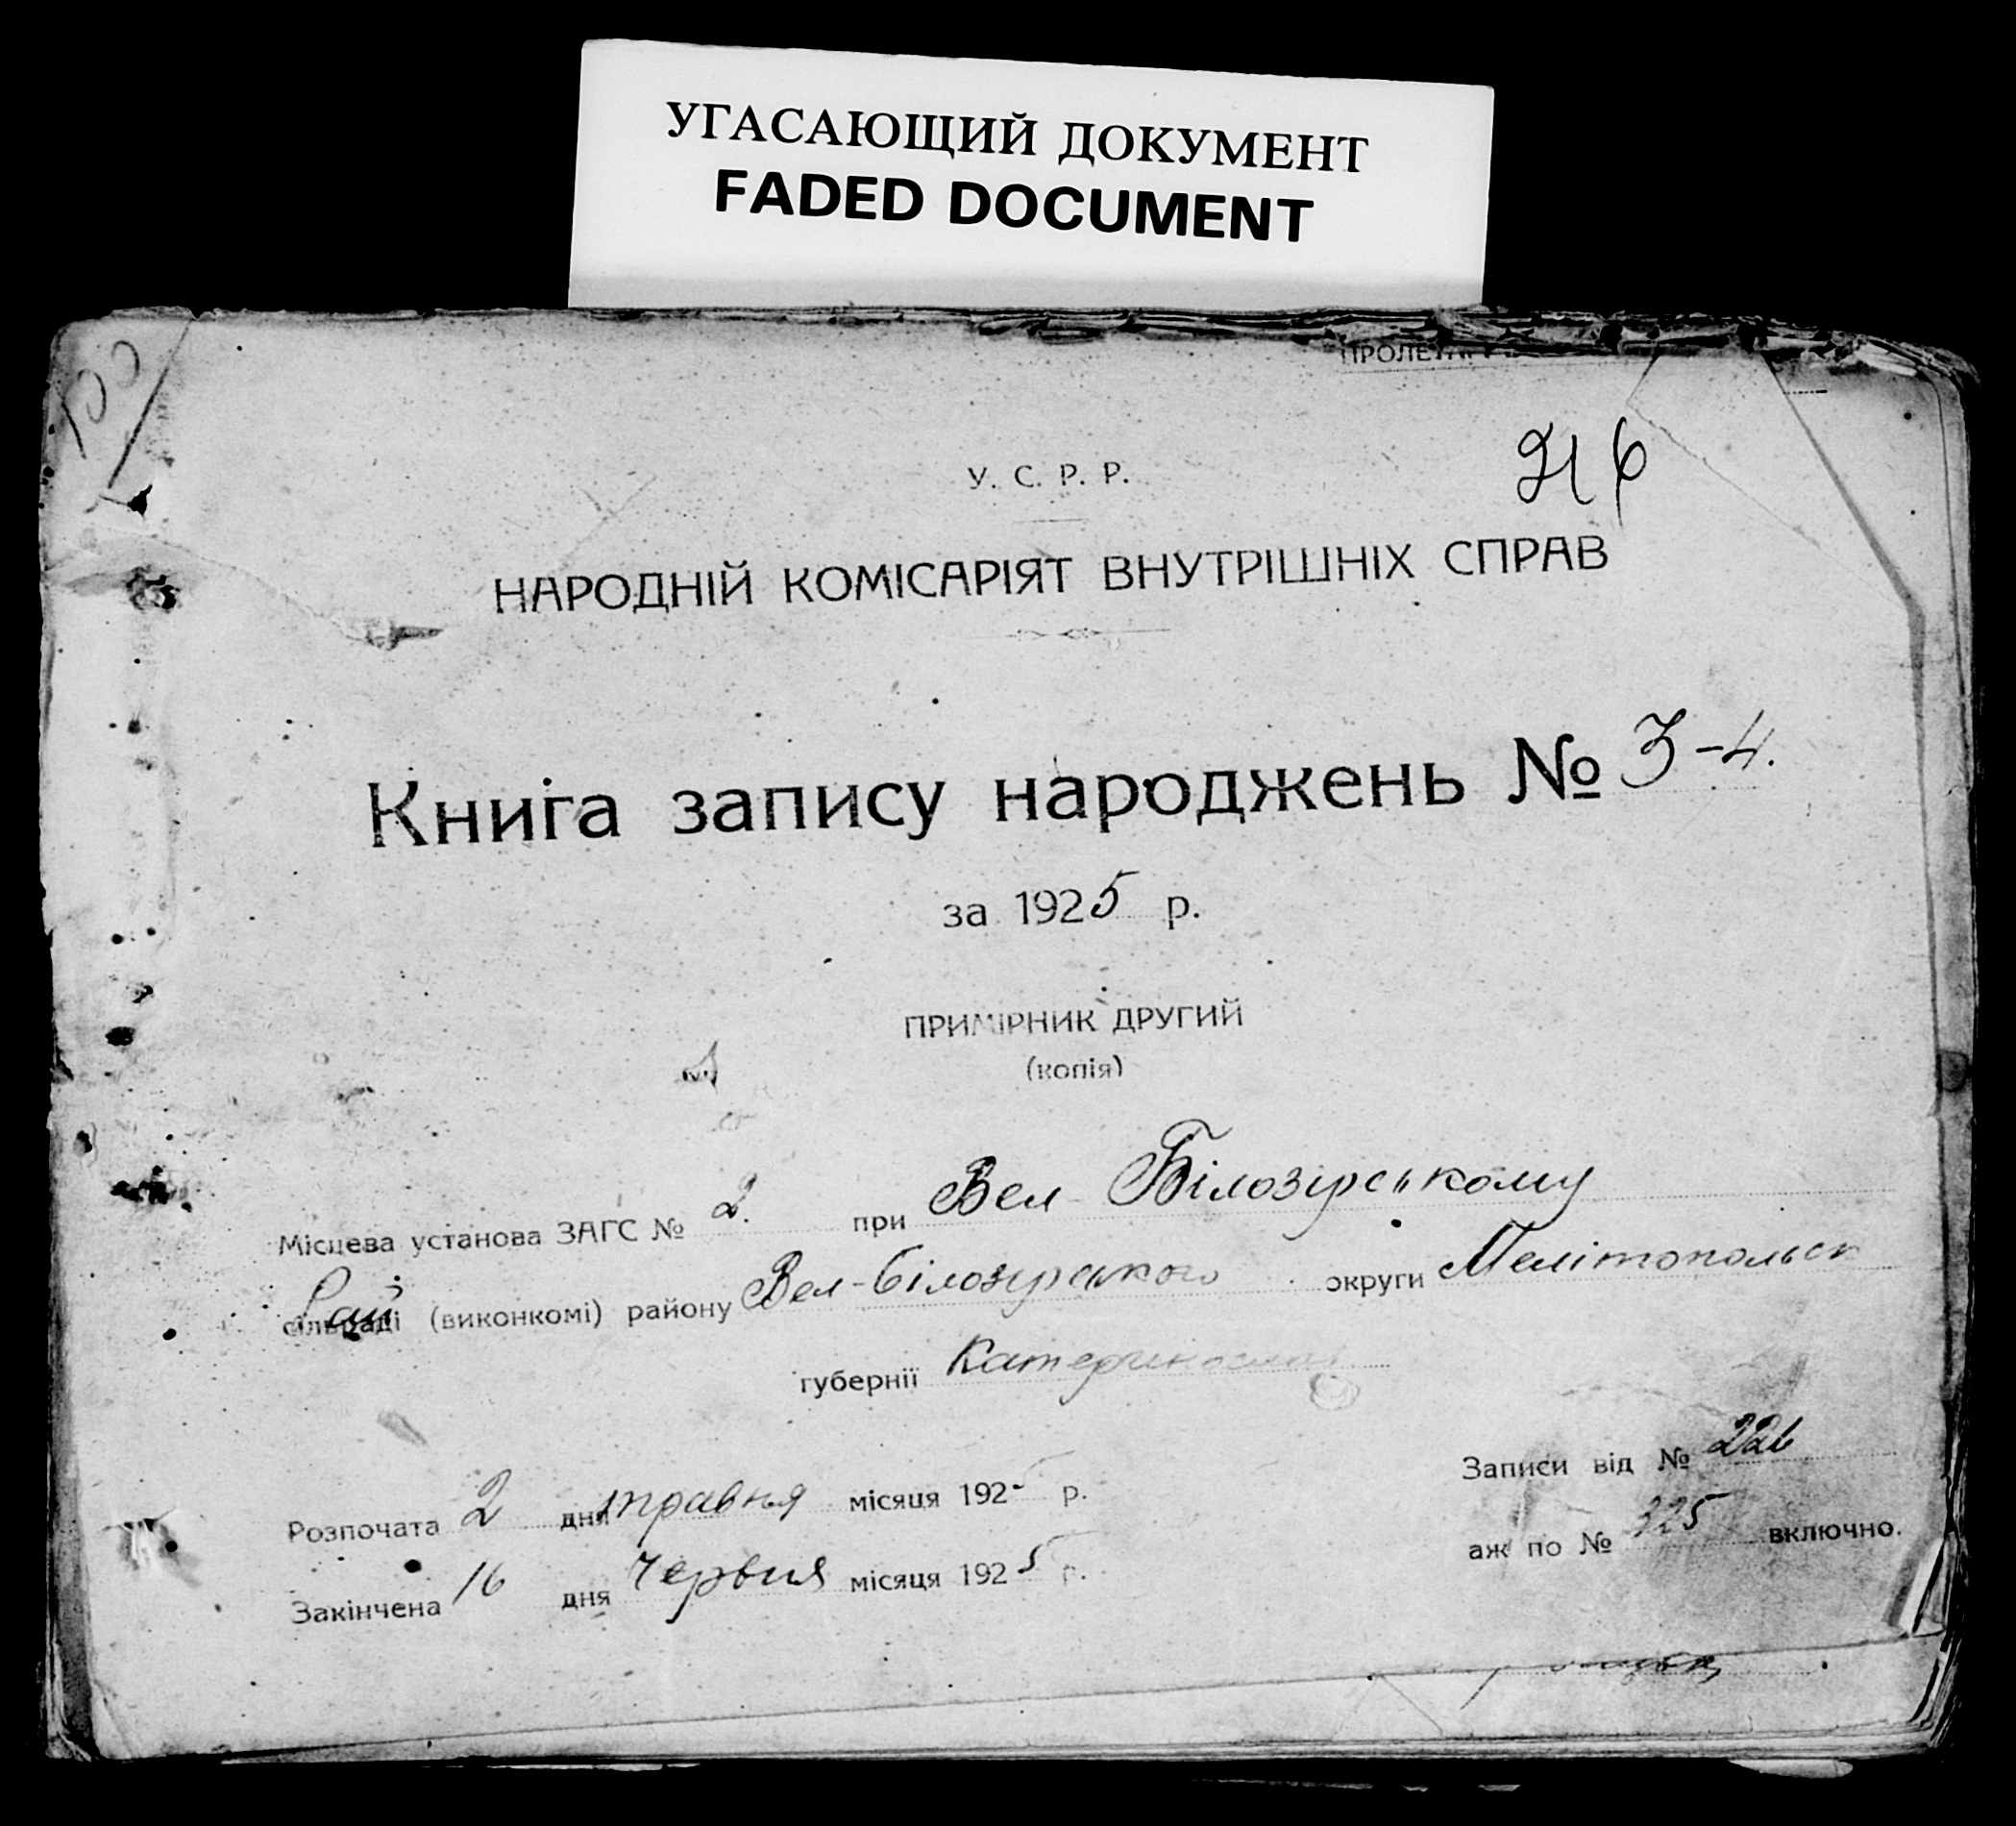 УГАСАЮЩИЙ ДОКУМЕНТ
FADED DOCUMENT
У. С. Р. Р.
НАРОДНІЙ КОМІСАРІЯТ ВНУТРІШНІХ СПРАВ
Книга запису народжень № 3-4.
за 1925 р.
ПРИМІРНИК ДРУГИЙ
(копія)
Місцева установа ЗАГС № 2. при Вел Білозірському
Рай (виконкомі) району Вел-Білозірського округи Мелітопольськ
губернії Катеринослав
Розпочата 2 дня травня місяця 192 р.
Записи від № 226
Закінчена 16 дня Червня місяця 1925 р.
аж по № 325 включно.